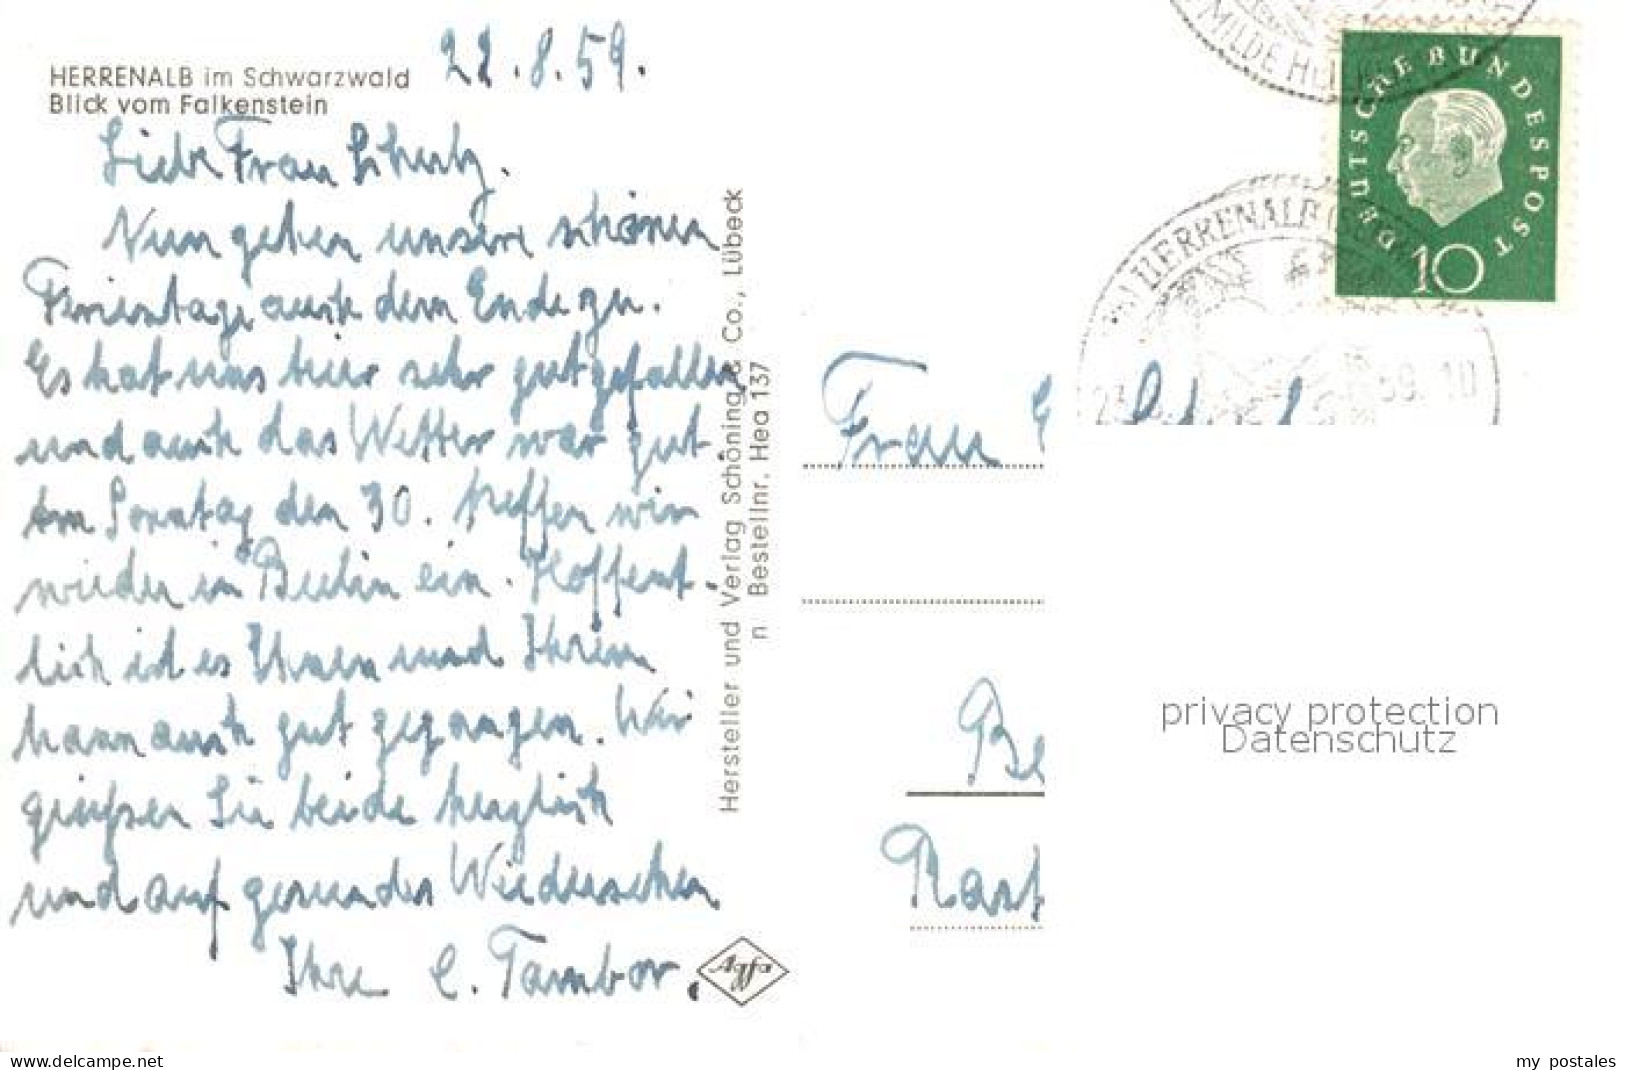 HERRENALB im Schwarzwald
Blick vom Falkenstein
22.8.59.
Liebe Frau
Nun gehen unsere schönen
Ferientage auch dem Ende zu.
Es hat uns hier sehr gut gefallen
und auch das Wetter war gut.
Am Sonntag den 30. treffen wir
wieder in Berlin ein. Hoffent-
lich ist es Ihnen und Ihrem
Mann auch gut gegangen. Wir
grüßen Sie beide herzlich
und auf gesundes Wiedersehen
Ihre C. Tambor.
Hersteller und Verlag Schöning & Co., Lübeck
n Bestellnr. Hea 137
Agfa
MILDE
DEUTSCHE BUNDESPOST
10
HERRENALB
23. 59.10
Frau
Be
privacy protection
Datenschutz
www.delcampe.net
my_postales